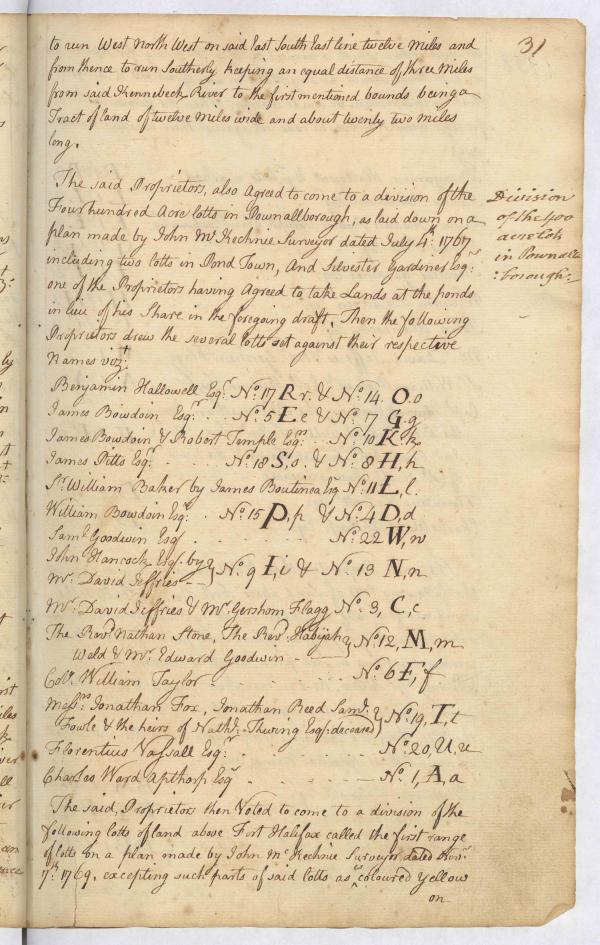 31
to run West North West on said East South East line twelve Miles and
from thence to run Southerly keeping an equal distance of three Miles
from said Kennebeck River to the first mentioned bounds being a
Tract of land of twelve Miles wide and about twenty two miles
long.
The said Proprietors, also Agreed to come to a division of the
Four hundred Acre lotts in Pownallborough, as laid down on a
plan made by John McKechnie Surveyor dated July 4th: 1767
including two lotts in Pond Town, And Silvester Gardiner Esqr:
one of the Proprietors having Agreed to take Lands at the ponds
in lieu of his Share in the foregoing draft, Then the following
Proprietors drew the several lotts set against their respective
Names vizt
Division
of the 400
acre lots
in Pownall
:borough:
Benjamin Hallowell Esqr No: 17 R r. & No: 14. O.o
James Bowdoin Esqr . . No: 5 E e & No: 7 G.g
James Bowdoin & Robert Temple Esqrs . . No: 10 K.k
James Pitts Esqr . . No: 18 S,s. & No: 8 H,h
Sr William Baker by James Boutinea Esq No: 11 L,l.
William Bowdoin Esqr . No: 15 P,p & No: 4 D,d
Saml: Goodwin Esq . . . No: 22 W,w
John Hancock Esq. by } No: 9 I,i & No: 13 N,n
Mr: David Jeffries
Mr: David Jeffries & Mr. Gershom Flagg No: 3, C,c
The Revd. Nathan Stone, The Revd. Habijah } No: 12, M,m
Weld & Mr. Edward Goodwin
Colo. William Taylor . . . No: 6 F,f
Messrs Jonathan Fox, Jonathan Reed Saml: } No: 19, T,t
Fowle & the heirs of Nathl: Thwing Esqr. deceased
Florentius Vassall Esqr: . . . No: 20, U,u
Charles Ward Apthorp Esq . . . No: 1, A,a
The said, Proprietors then Voted to come to a division of the
following lotts of land above Fort Halifax called the first range
of lotts on a plan made by John McKechnie Surveyor dated Novr
7th 1769. excepting such parts of said lotts as coloured Yellow
on